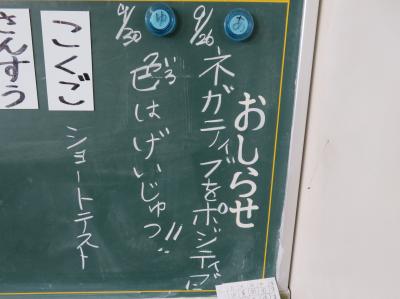 おしらせ
9/26
ネガティブをポジティブに
9/30
色はげいじゅつ!!
いろ
こくご
ショートテスト
さんすう